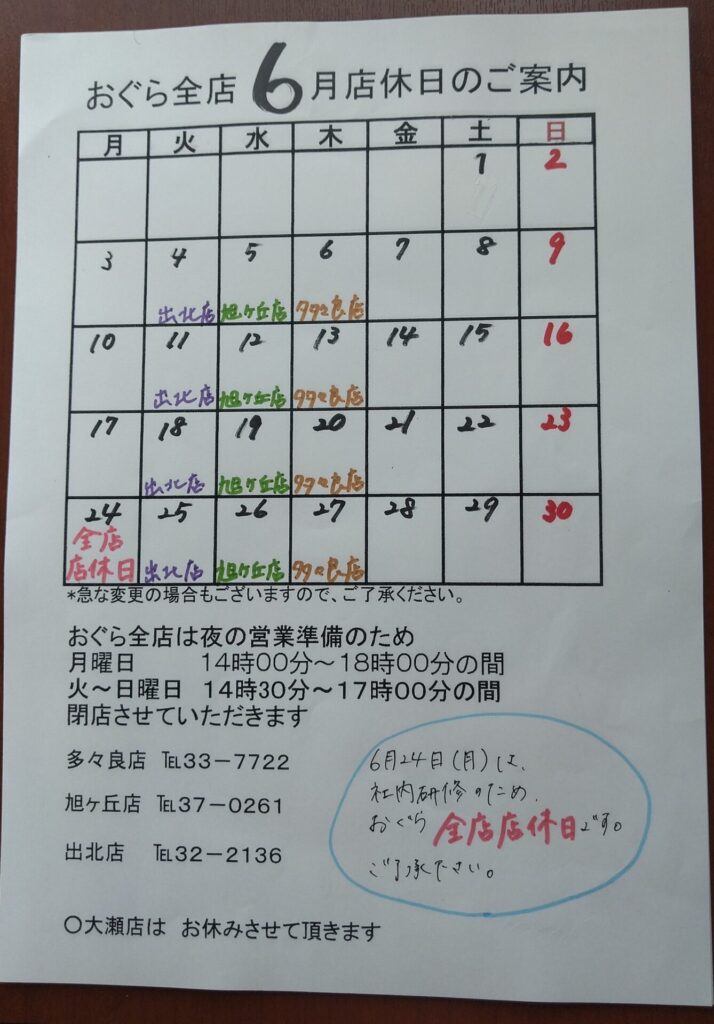 おぐら全店 6月店休日のご案内
月 火 水 木 金 土 日
1 2
3 4 5 6 7 8 9
出北店 旭ヶ丘店 多々良店
10 11 12 13 14 15 16
出北店 旭ヶ丘店 多々良店
17 18 19 20 21 22 23
出北店 旭ヶ丘店 多々良店
24 25 26 27 28 29 30
全店
店休日 出北店 旭ヶ丘店 多々良店
*急な変更の場合もございますので、ご了承ください。
おぐら全店は夜の営業準備のため
月曜日 14時00分～18時00分の間
火～日曜日 14時30分～17時00分の間
閉店させていただきます
多々良店 ℡33－7722
旭ヶ丘店 ℡37－0261
出北店 ℡32－2136
6月24日(月)は、
社内研修のため、
おぐら 全店店休日です。
ご了承ください。
〇大瀬店は お休みさせて頂きます